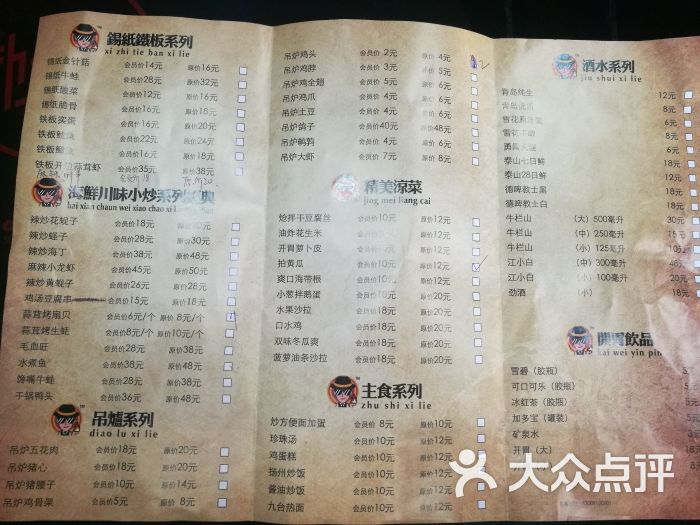 錫紙鐵板系列
xi zhi tie ban xi lie
锡纸金针菇 会员价14元 原价16元
锡纸牛蛙 会员价28元 原价32元
锡纸酸菜 会员价12元 原价16元
锡纸脆骨 会员价16元 原价20元
铁板实蛋 会员价12元 原价14元
铁板鱿鱼 会员价22元 原价24元
会员价16元 原价18元
会员价35元 原价38元
海鮮川味小炒系列
辣炒花蚬子 会员价18元 原价20元
辣炒蛏子 会员价28元 原价30元
辣炒海丁 会员价38元 原价48元
麻辣小龙虾 会员价45元 原价50元
辣炒黄蚬子 会员价26元 原价28元
鸡汤豆腐串 会员价15元 原价18元
蒜茸烤扇贝 会员价6元/个 原价8元/个
蒜茸烤生蚝 会员价8元/个 原价10元/个
毛血旺 会员价28元 原价38元
水煮鱼 会员价38元 原价48元
馋嘴牛蛙 会员价38元 原价48元
干锅鸭头 会员价36元 原价48元
吊爐系列
diao lu xi lie
吊炉五花肉 会员价18元 原价20元
吊炉猪心 会员价18元 原价20元
吊炉猪腰子 会员价18元 原价20元
吊炉鸡骨架 会员价5元 原价8元
吊炉鸡头 会员价2元 原价4元
吊炉鸡脖 会员价3元 原价5元
吊炉鸡全翅 会员价4元 原价6元
吊炉鸡爪 会员价4元 原价6元
吊炉土豆 会员价4元 原价6元
吊炉鸽子 会员价40元 原价48元
吊炉鹌鹑 会员价6元 原价8元
吊炉大虾 会员价6元 原价7元
精美涼菜
jing mei liang cai
烩拌干豆腐丝 会员价10元 原价12元
油炸花生米 会员价10元 原价12元
开胃萝卜皮 会员价10元 原价12元
拍黄瓜 会员价10元 原价12元
爽口海带根 会员价10元 原价12元
小葱拌鹅蛋 会员价10元 原价12元
水果沙拉 会员价18元 原价20元
口水鸡 会员价18元 原价20元
双味冬瓜爽 会员价18元 原价20元
菠萝油条沙拉 会员价18元 原价20元
主食系列
zhu shi xi lie
炒方便面加蛋 会员价8元 原价10元
珍珠汤 会员价10元 原价12元
鸡蛋糕 会员价10元 原价12元
扬州炒饭 会员价10元 原价12元
酱油炒饭 会员价10元 原价12元
九台热面 会员价10元 原价12元
酒水系列
jiu shui xi lie
青岛纯生 12元
10元
8元
8元
泰山七日鲜
泰山28日鲜
德啤教士黑
德啤教士白
牛栏山 （大）500毫升 30元
牛栏山 （中）250毫升 15元
牛栏山 （小）125毫升 10元
江小白 （中）300毫升 48元
江小白 （小）100毫升 20元
劲酒 （小） 18元
開胃飲品
kai wei yin pin
雪碧（胶瓶）
可口可乐（胶瓶）
冰红茶（胶瓶）
加多宝（罐装）
矿泉水
开胃（大）
大众点评